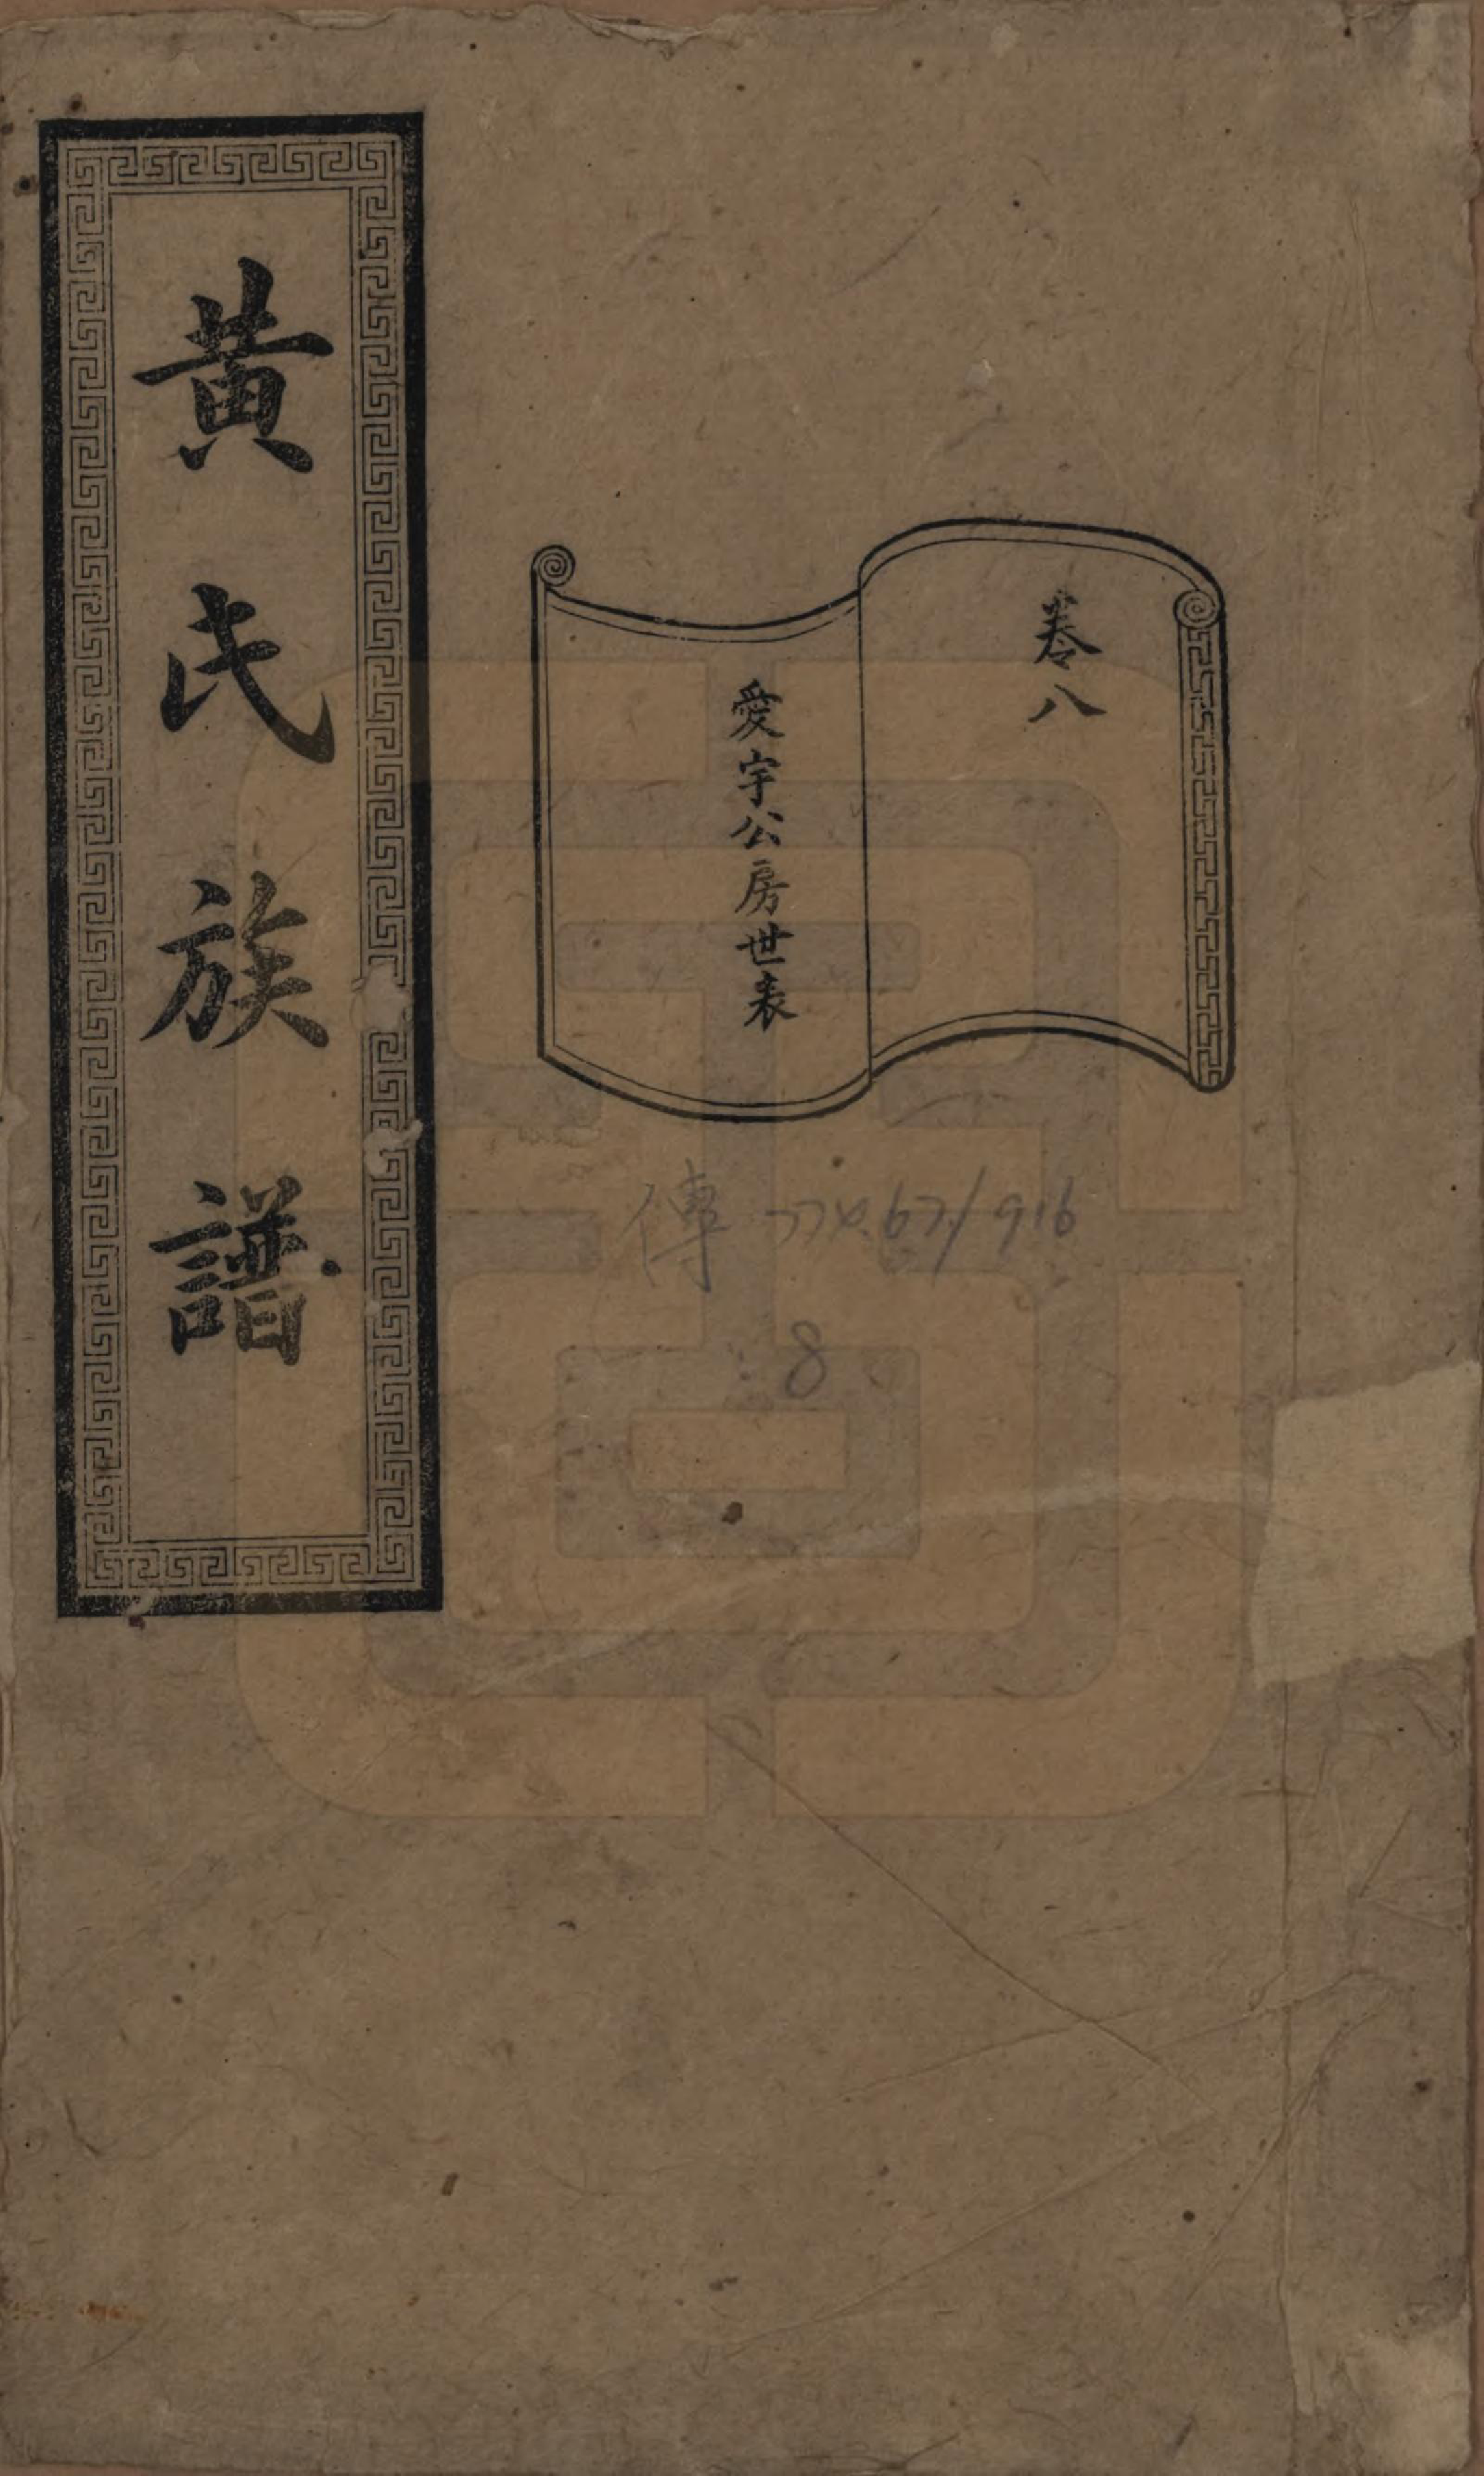 黃氏族譜
卷八
愛宇公房世表
傳
8